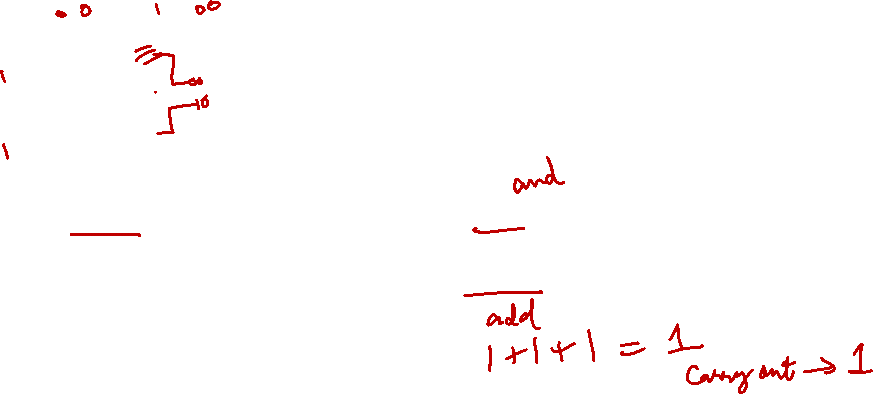 0 1 00
1
00
10
1
and
add
1+1+1 = 1
Carry out → 1